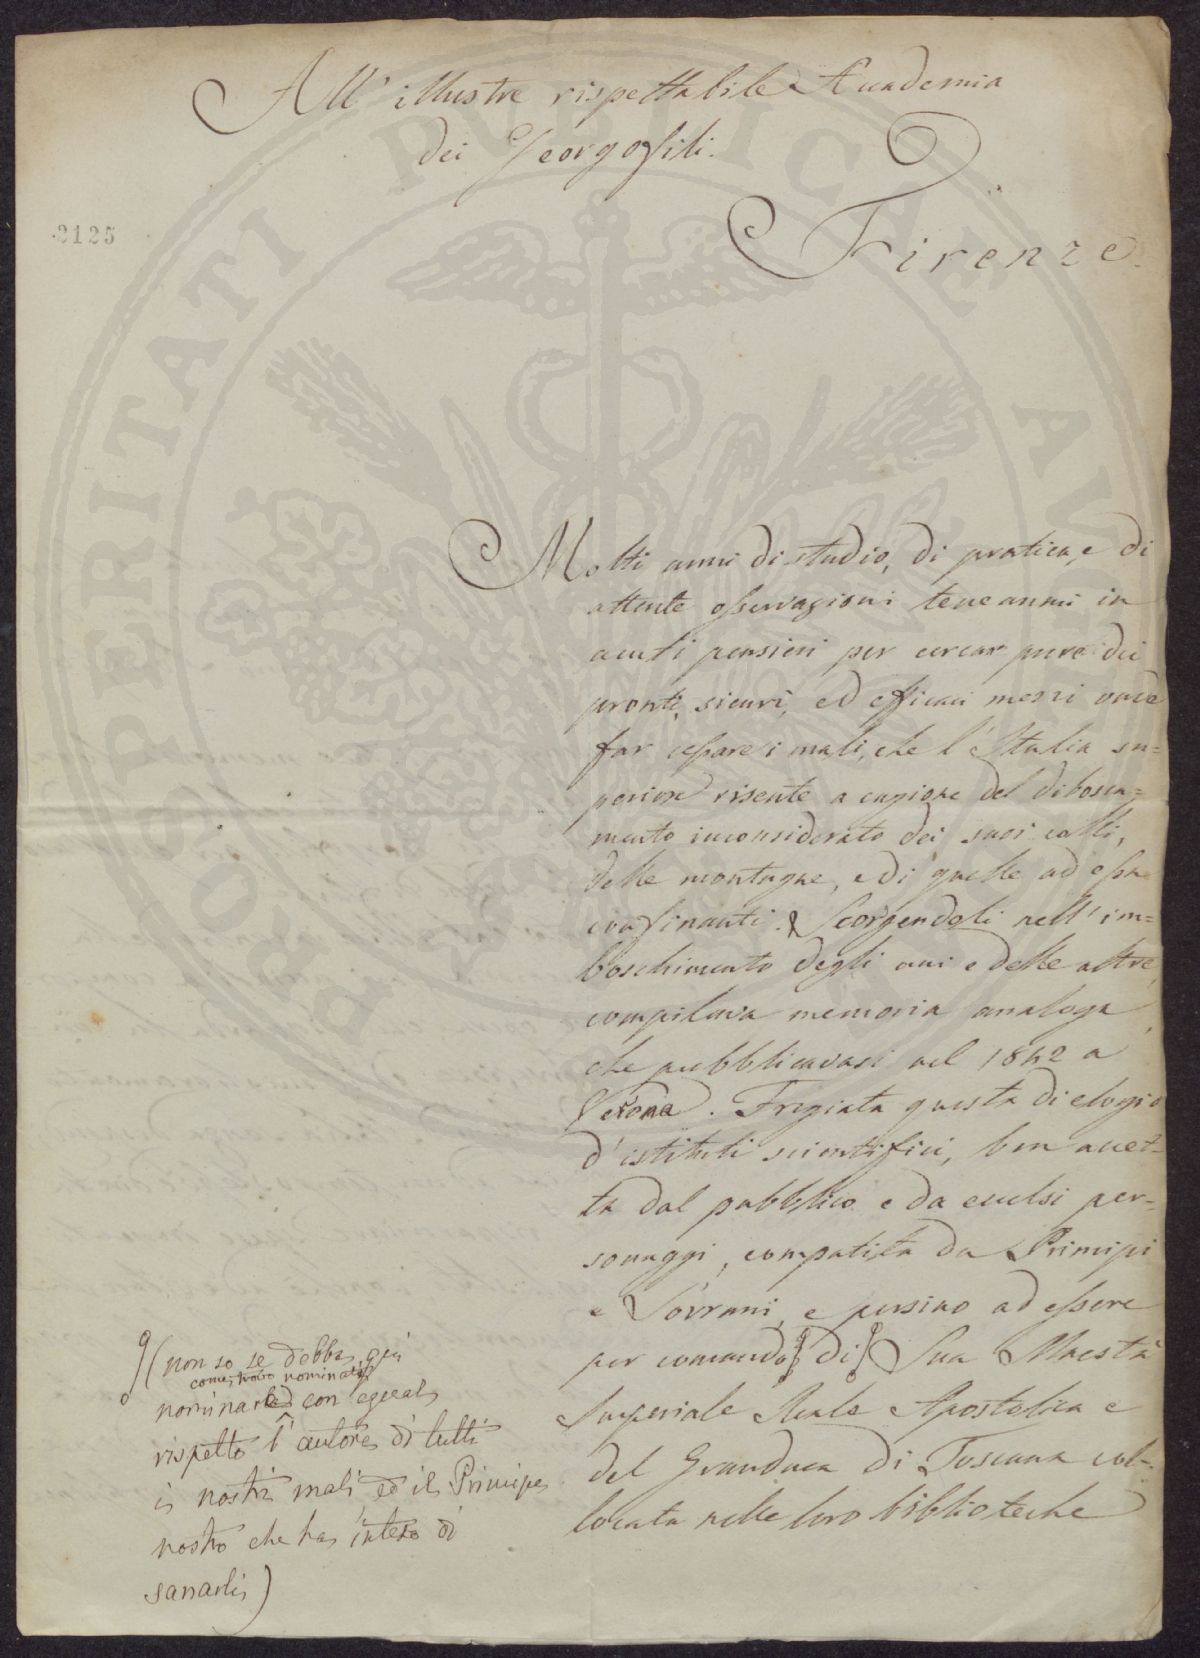 All' illustre rispettabile Accademia
dei Georgofili.
Firenze.
2125
Molti anni di studio, di pratica, e di
attente osservazioni teneanmi in
acuti pensieri per cercar pure dei
pronti, sicuri, ed efficaci mezzi onde
far cessare i mali, che l'Italia su=
periore risente a cagione del disbosca=
mento inconsiderato dei suoi colli,
delle montagne, e di quelle ad essa
confinanti. Scorgendoli nell'im=
boschimento degli uni e delle altre,
compilava memoria analoga,
che pubblicavasi nel 1842 a
Verona. Fregiata questa di elogio
d'istituti scientifici, ben accet=
ta dal pubblico e da eccelsi per=
sonaggi, compatita da Principi
e Sovrani, e persino ad essere
per comando di Sua Maestà
Imperiale Reale Apostolica e
del Granduca di Toscana col=
locata nelle loro biblioteche
(non so se debba quì
come trovo nominati
nominarle con egual
rispetto l'autore di tutti
i nostri mali ed il Principe
nostro che ha inteso di
sanarli)
PUBLICAE
AU
PROSPERITATI